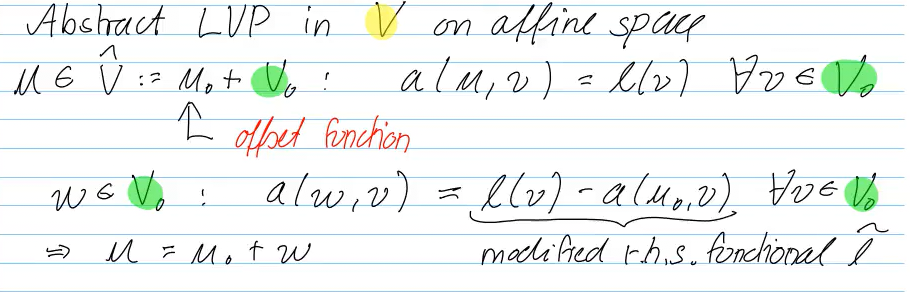 Abstract LVP in V on affine space
u ∈ V̂ := u₀ + V₀ : a(u,v) = l(v) ∀v ∈ V₀
offset function
w ∈ V₀ : a(w,v) = l(v) - a(u₀,v) ∀v ∈ V₀
⇒ u = u₀ + w modified r.h.s. functional l̃